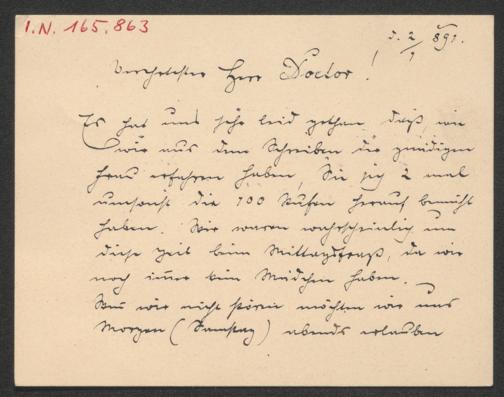 I.N. 165.863
d. 2/1 891.
Verehrtester Herr Doctor!
Es hat uns sehr leid gethan, daß, wie
wir aus dem Schreiben der gnädigen
Frau erfahren haben, Sie sich 2 mal
umsonst die 100 Stufen herauf bemüht
haben. Wir waren wahrscheinlich um
diese Zeit beim Mittagsfraß, da wir
noch immer kein Mädchen haben.
Wenn wir nicht stören möchten wir uns
Morgen (Samstag) abends erlauben